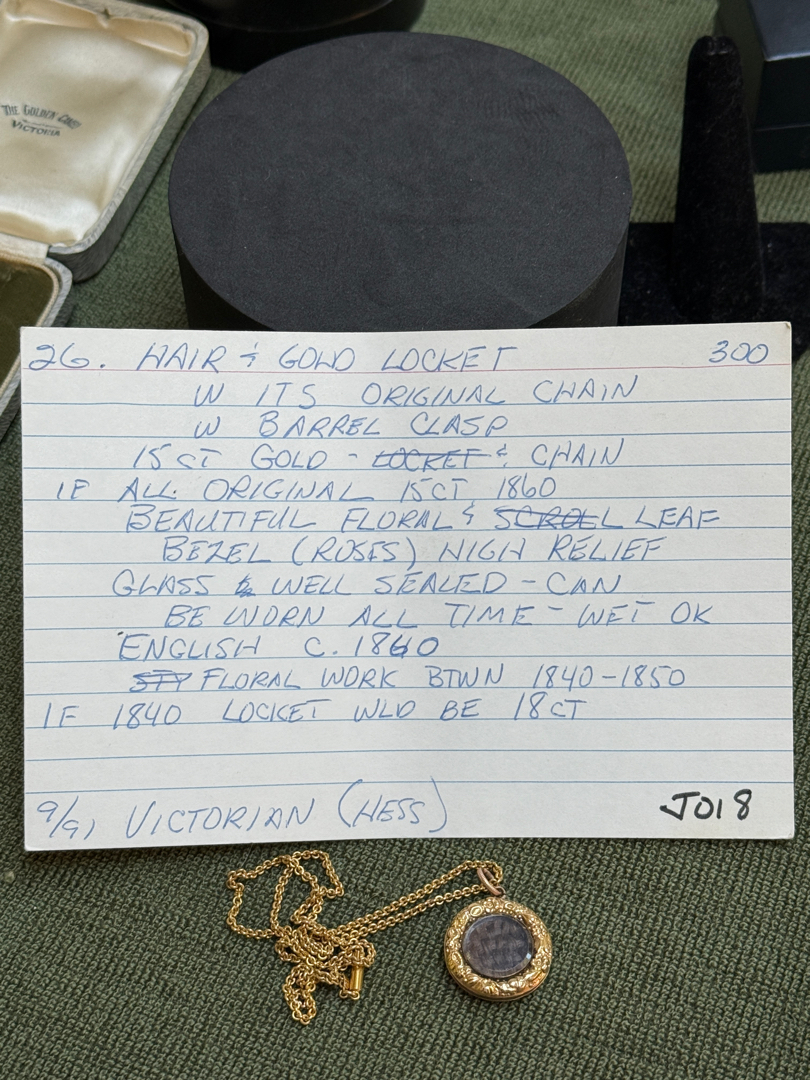 THE GOLDEN
VICTORIA
26. HAIR & GOLD LOCKET 300
W ITS ORIGINAL CHAIN
W BARREL CLASP
15 CT GOLD - LOCKET & CHAIN
IF ALL ORIGINAL 15CT 1860
BEAUTIFUL FLORAL & SCROLL LEAF
BEZEL (ROSES) HIGH RELIEF
GLASS WELL SEALED - CAN
BE WORN ALL TIME - WET OK
ENGLISH C. 1860
FLORAL WORK BTWN 1840-1850
IF 1840 LOCKET WLD BE 18CT
9/91 VICTORIAN (HESS)
J018